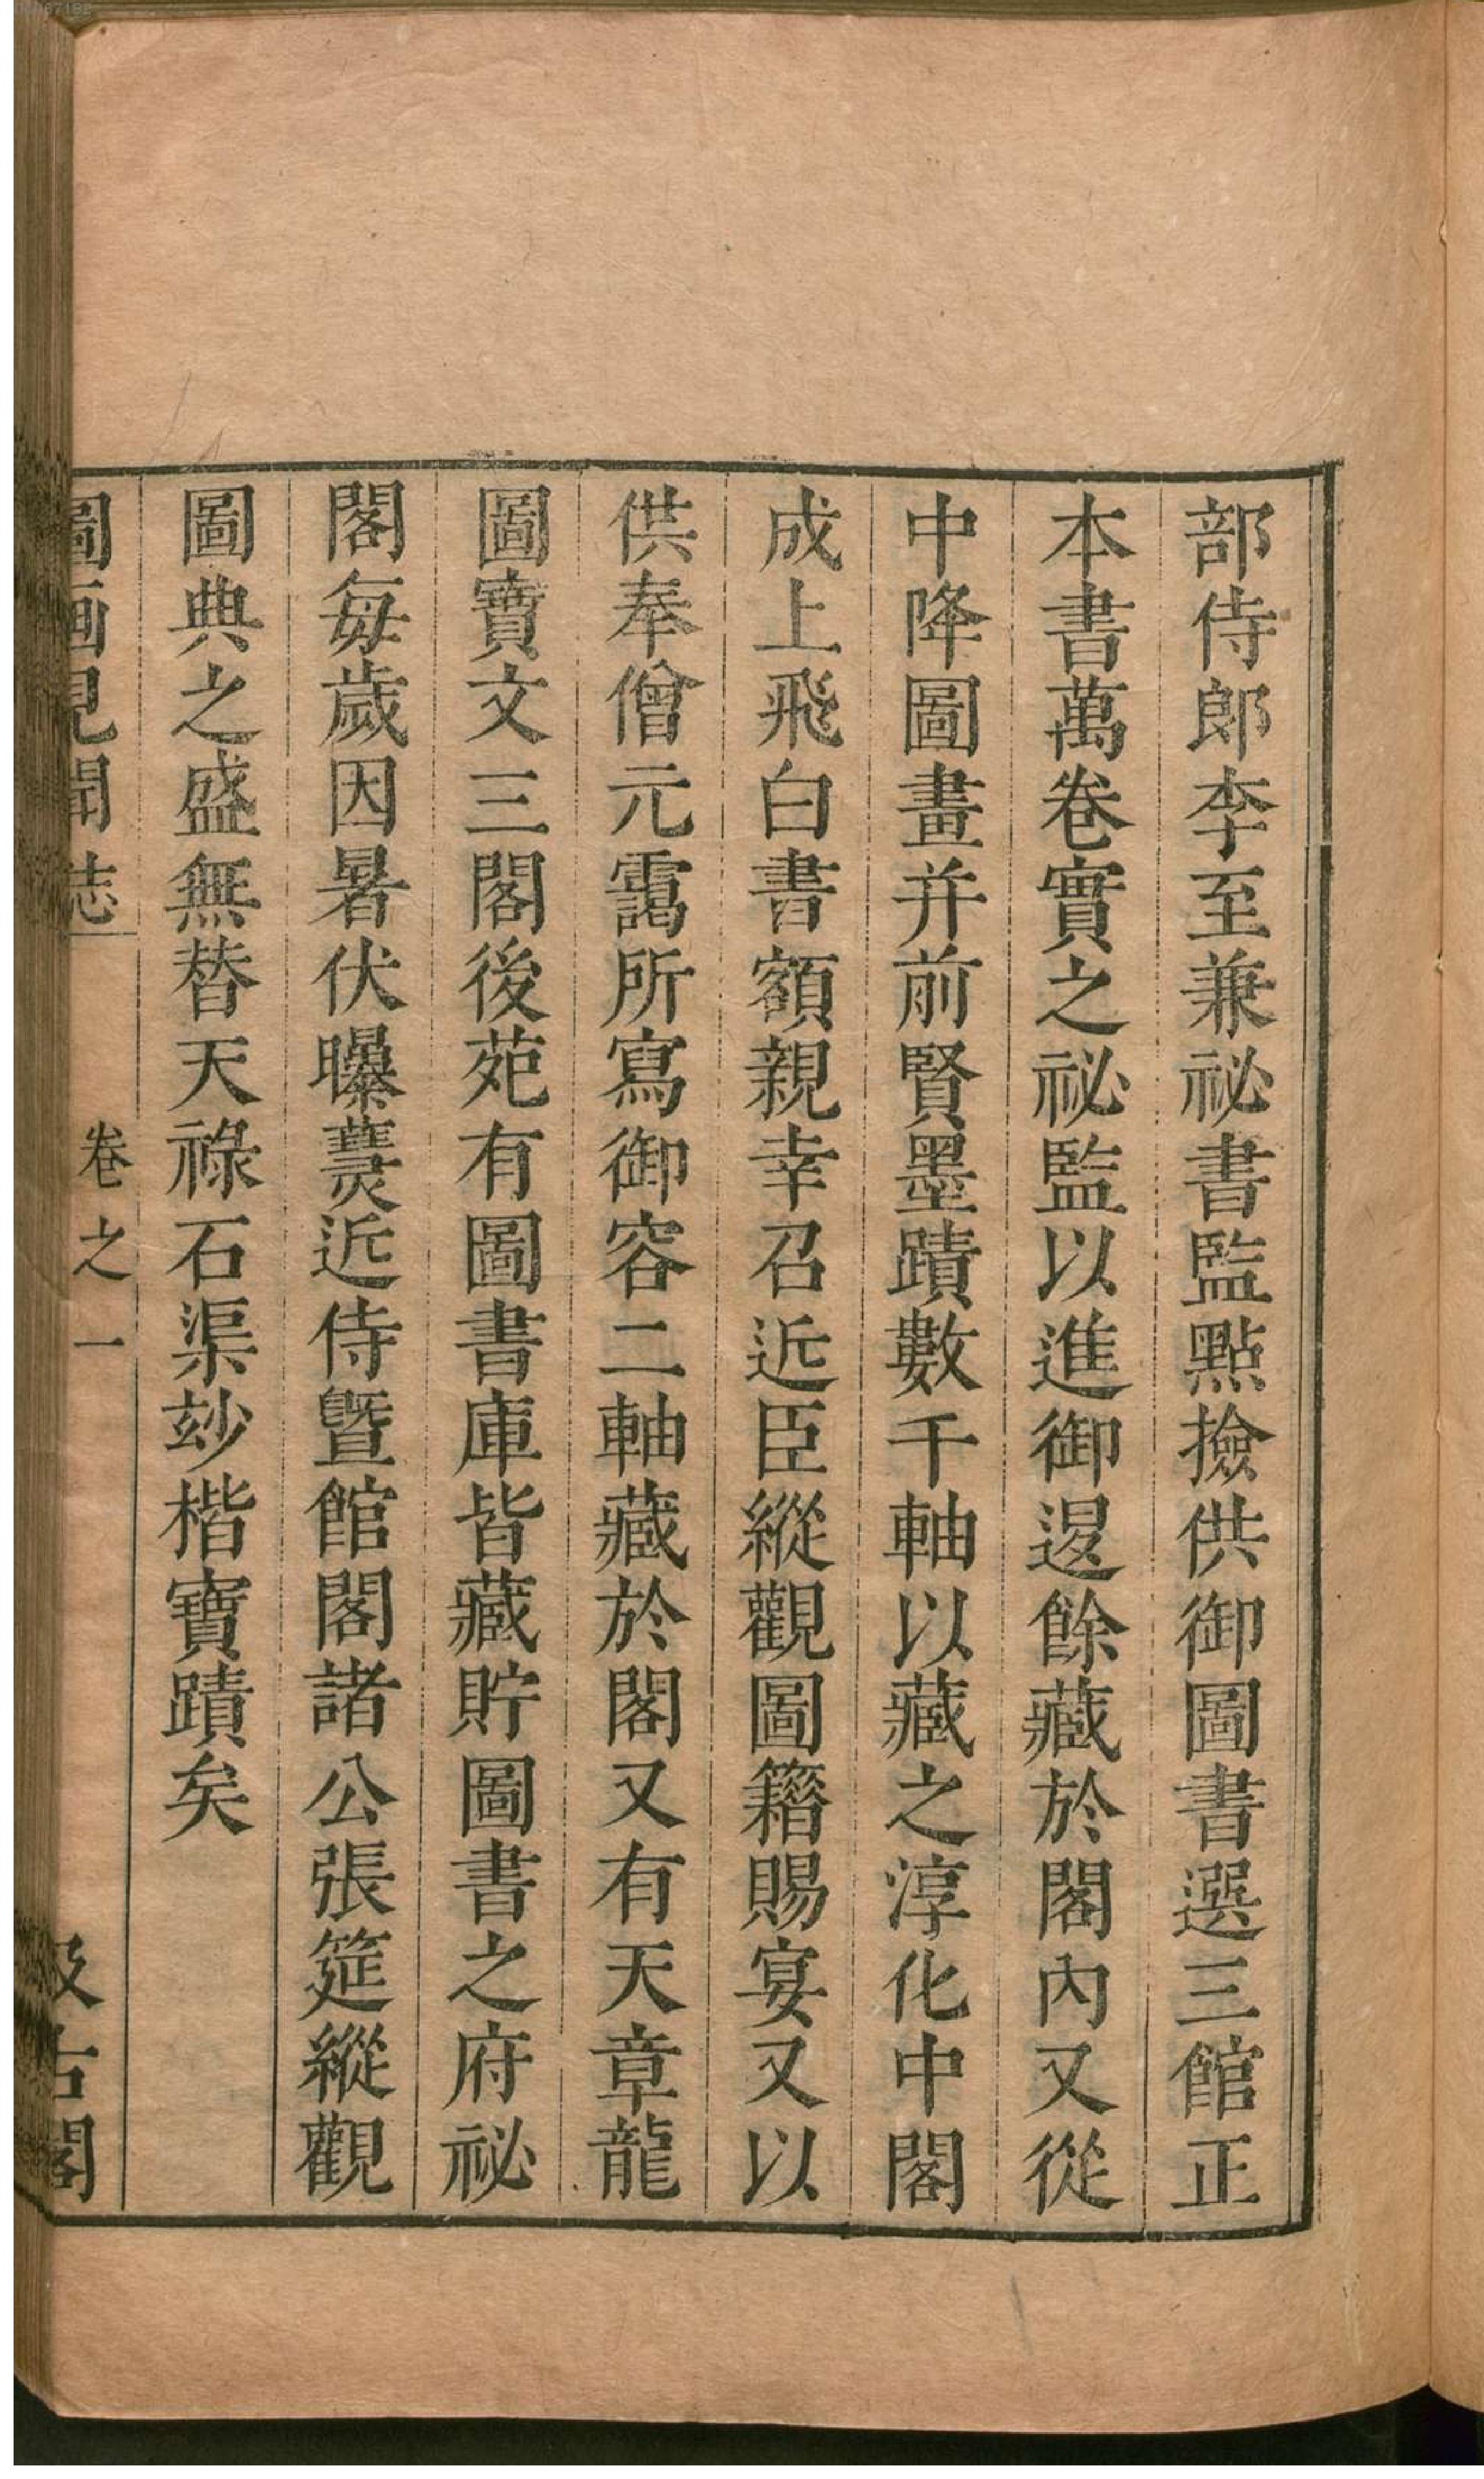 部侍郎李至兼祕書監點撿供御圖書選三館正
本書萬卷實之祕監以進御退餘藏於閣內又從
中降圖畫并前賢墨蹟數千軸以藏之淳化中閣
成上飛白書額親幸召近臣縱觀圖籍賜宴又以
供奉僧元靄所寫御容二軸藏於閣又有天章龍
圖寶文三閣後苑有圖書庫皆藏貯圖書之府祕
閣每歲因暑伏曝䕾近侍暨館閣諸公張筵縱觀
圖典之盛無替天祿石渠玅楷寶蹟矣
圖画見聞志 卷之一 汲古閣